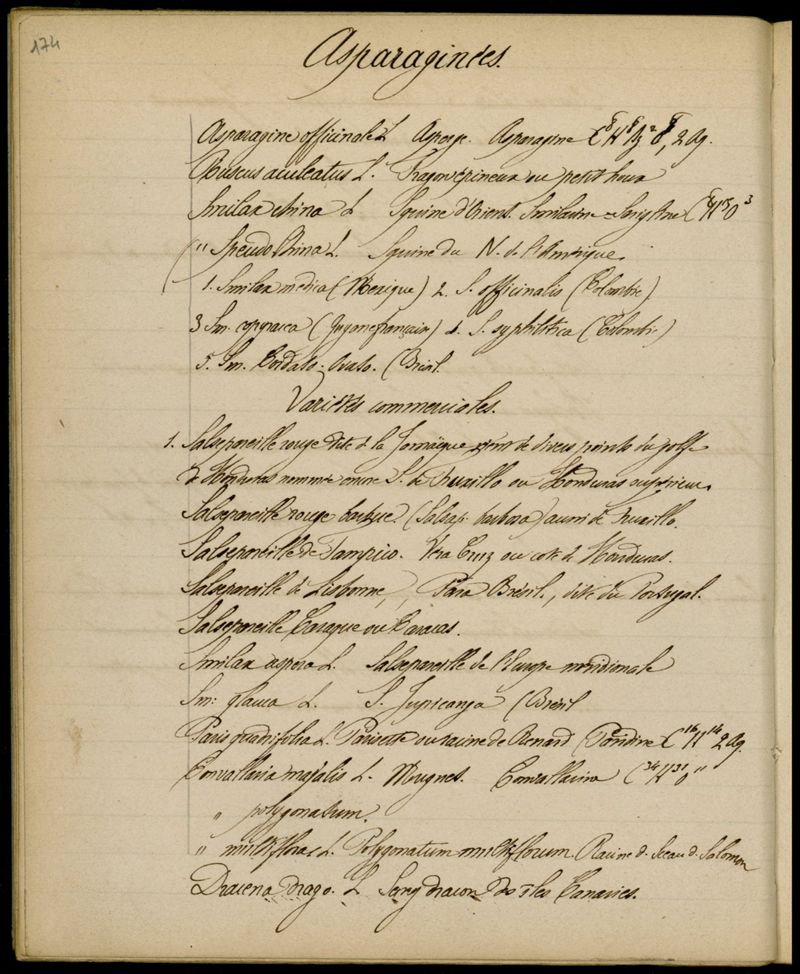 174
Asparaginées.
Asparagine officinale L Asperge. Asparagine C⁸H⁸Az²O⁶, 2 Aq.
Ruscus aculeatus L. Fragon épineux ou petit houx
Smilax china L Squine d'Orient. Smilacine
" Speudo China L. Squine du N. de l'Amérique.
1. Smilax medica (Mexique) 2. S. officinalis (Colombie)
3 Sm. (Guyane française) 4. S. syphilitica (Colombie)
5. Sm. Cordato-ovato. (Brésil.
Variétés commerciales.
1. Salsepareille rouge dite de la Jamaïque de divers points du golfe
de Honduras nommée encore S. de Truxillo ou Honduras supérieur.
Salsepareille rouge barbue. (Salsap. barbara) aussi de Truxillo.
Salsepareille de Tampico. Vera Cruz ou côte de Honduras.
Salsepareille de Lisbonne, Para Brésil, dite du Portugal.
Salsepareille Caraque ou Caracas.
Smilax aspera L. Salsepareille de l'Europe méridionale
Sm: glauca L. S. Jupicanga (Brésil
Paris quadrifolia L. Parisette ou raisin de Renard (Paridine C¹⁶H¹⁴ 2 Aq.
Convallaria majalis L. Muguet. Convallarine C³⁴H³¹O¹¹
" polygonatum.
" multiflora L. Polygonatum multiflorum. Racine d. Sceau d. Salomon
Dracena drago. L Sang dracon des îles Canaries.